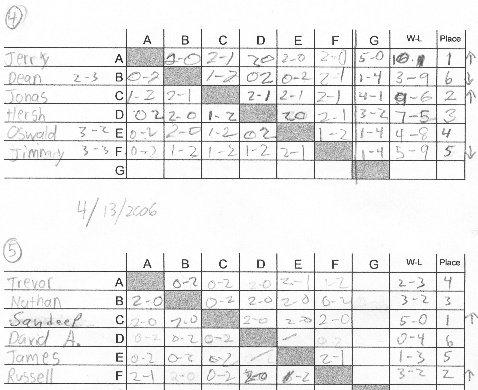 4
A B C D E F G W-L Place
Jerry A 2-0 2-1 20 2-0 2-0 5-0 10-1 1 ↑
Dean 2-3 B 0-2 1-2 02 0-2 2-1 1-4 3-9 6 ↓
Jonas C 1-2 2-1 2-1 2-1 2-1 4-1 9-6 2 ↑
Hersh D 02 2-0 1-2 20 2-1 3-2 7-5 3
Oswald 3-2 E 0-2 2-0 1-2 02 1-2 1-4 4-8 4
Jimmy 3-3 F 0-2 1-2 1-2 1-2 2-1 1-4 5-9 5 ↓
G
4/13/2006
5
A B C D E F G W-L Place
Trevor A 0-2 0-2 2-0 2-1 1-2 2-3 4
Nathan B 2-0 0-2 2-0 2-0 0-2 3-2 3
Sandeep C 2-0 2-0 2-0 2-0 2-0 5-0 1 ↑
David A. D 0-2 0-2 0-2 0-2 0-4 6
James E 0-2 0-2 0-2 2-1 1-3 5
Russell F 2-1 2-0 0-2 2-0 1-2 3-2 2 ↑